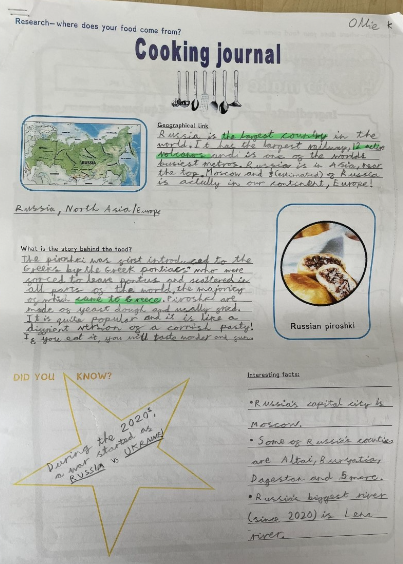 Research- where does your food come from?
Ollie K
Cooking journal
Geographical link
Russia is the largest country in the
world. It has the largest railway, 
volcanos and is one of the worlds
busiest metros. Russia is in Asia, near
the top, Moscow and of Russia
is actully in our continent, Europe!
RUSSIA
Russia, North Asia/Europe
What is the story behind the food?
The piroshki was first introduced to the
Greeks by the Greek pontiacs who were
forced to leave pontus and scattered in
all parts of the world, the majority
of which came to Greece. Piroshki are
made of yeast dough and usally fried.
It is quite popular and it is like a
diffrent version of a cornish pasty!
If you eat it, you will
Russian piroshki
DID YOU KNOW?
During the 2020s,
a war started as
RUSSIA vs UKRAINE
Interesting facts:
•Russia's capital city is
Moscow.
•Some of Russia's counties
are Altai,
Dagestan and more.
•Russia's biggest river
(since 2020) is Lena
river.